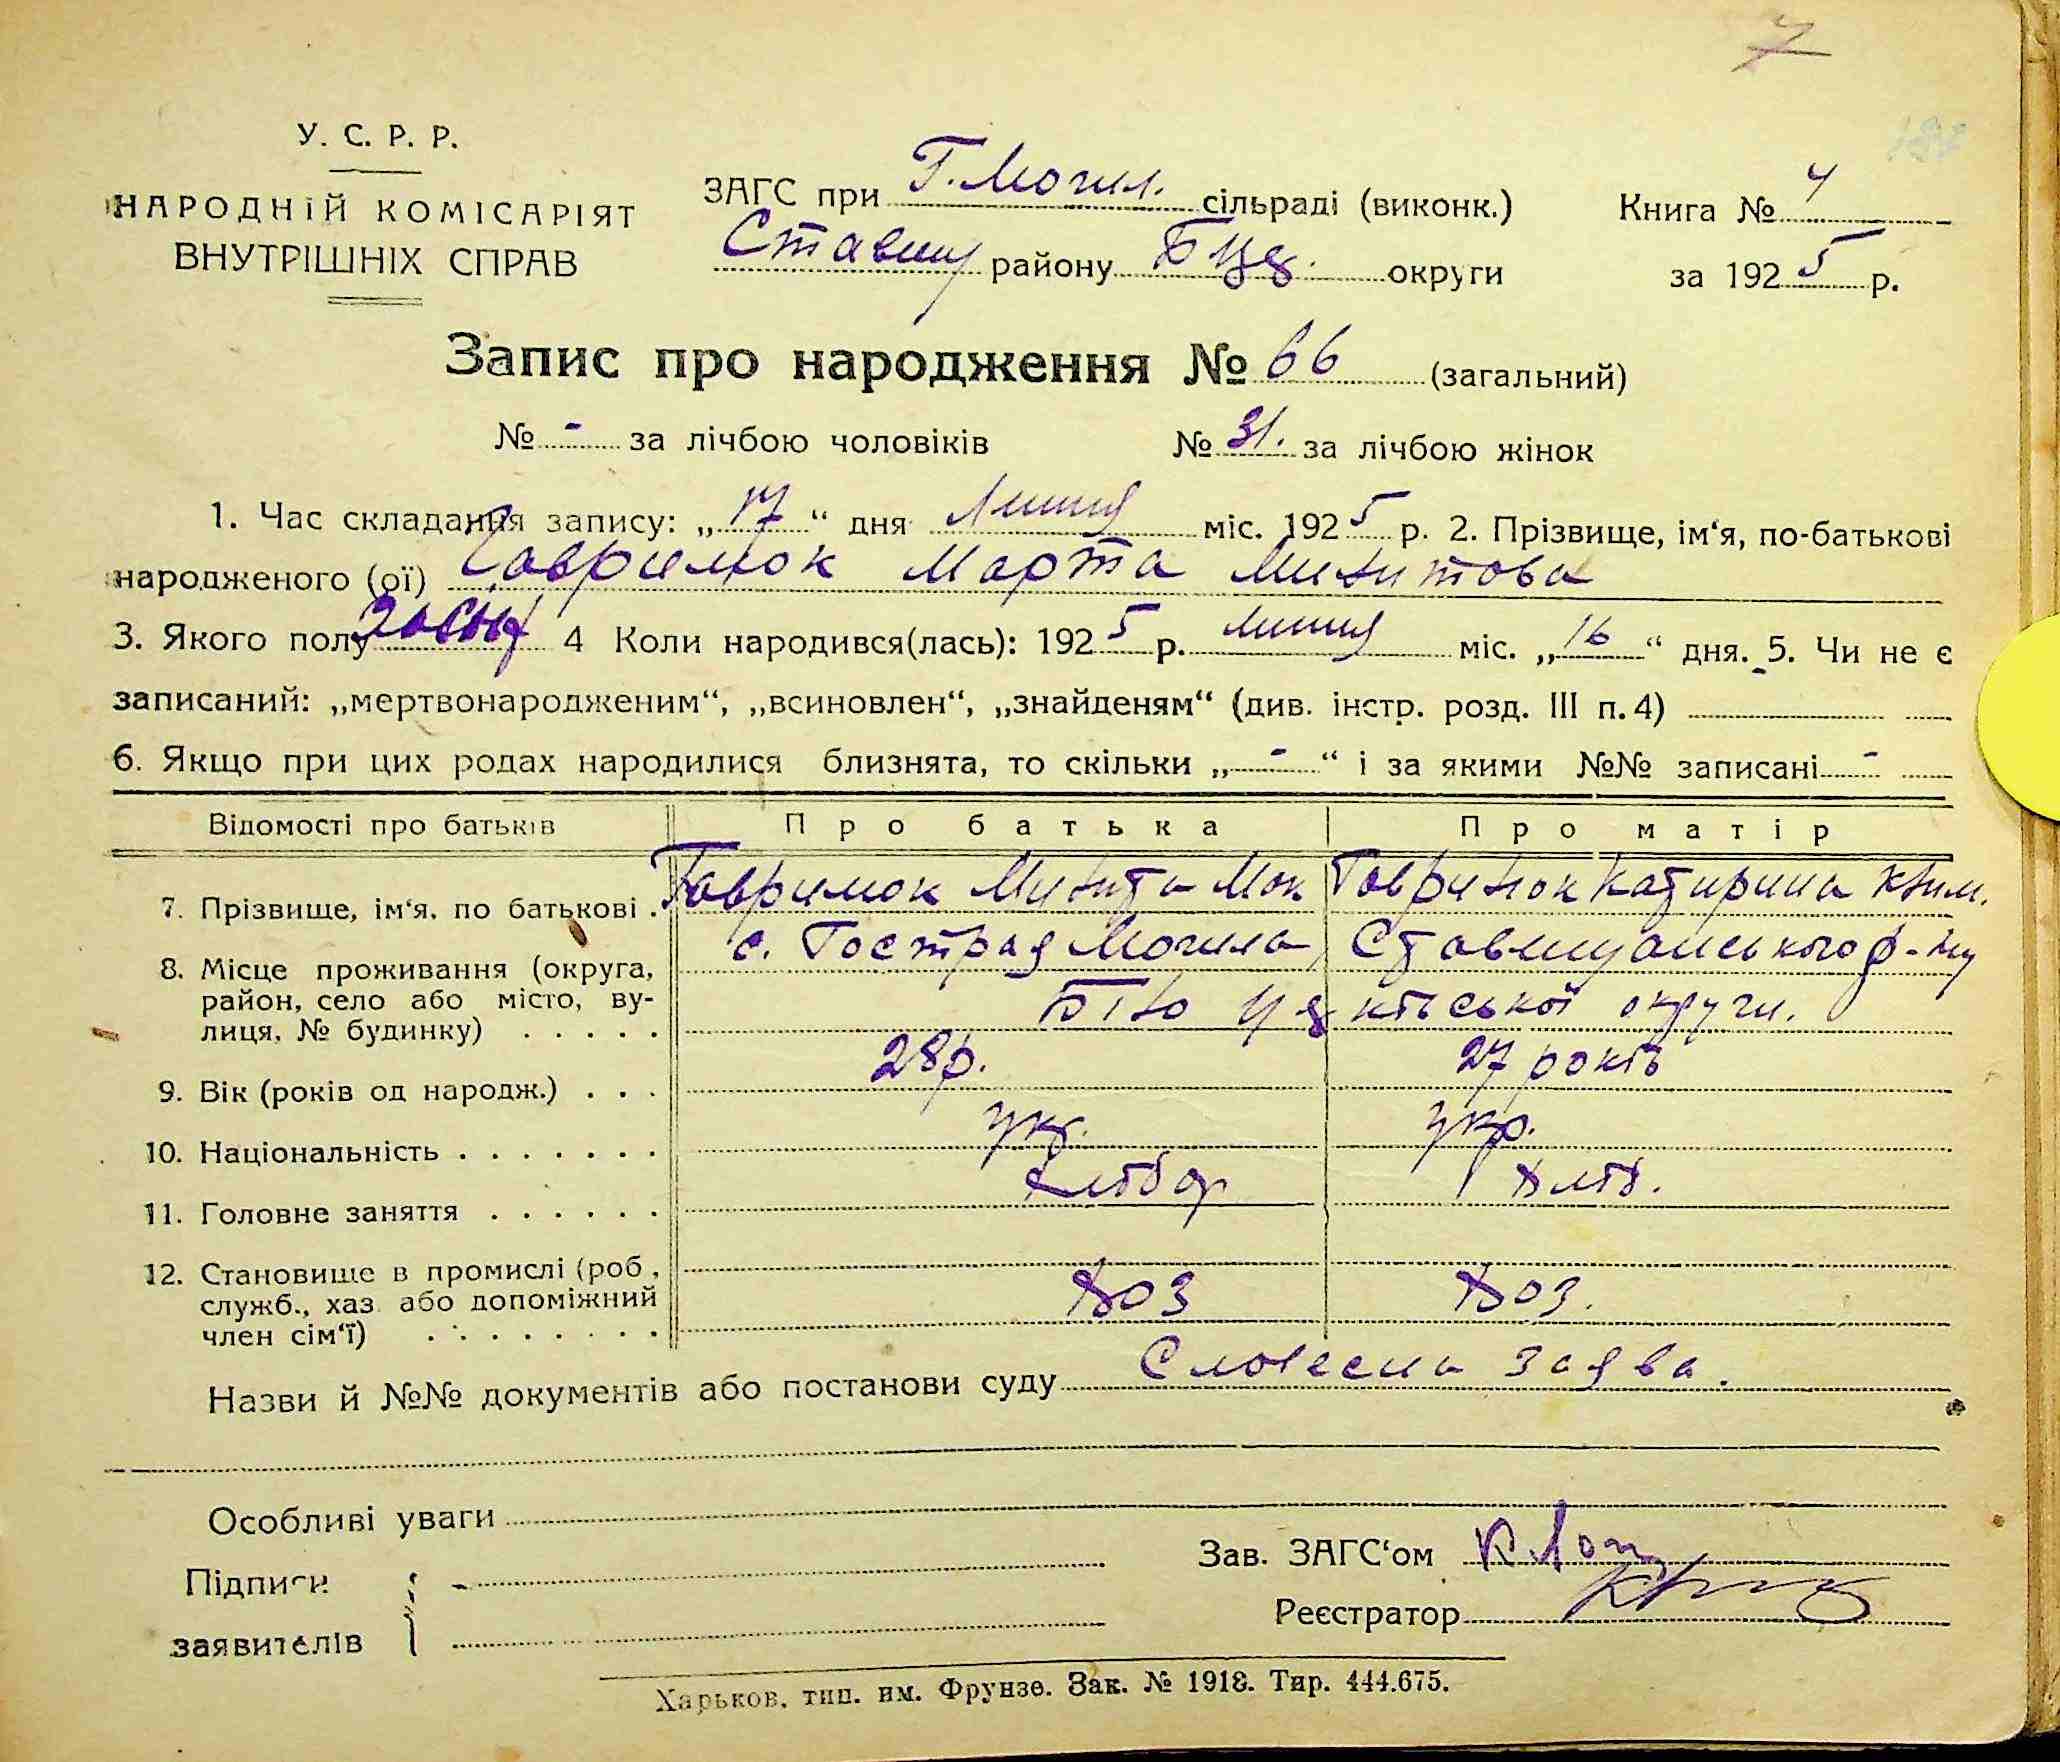 7
У. С. Р. Р.
НАРОДНІЙ КОМІСАРІЯТ
ВНУТРІШНІХ СПРАВ
ЗАГС при Г. Могил. сільраді (виконк.)
Ставищ району БЦд. округи
Книга № 4
за 1925 р.
Запис про народження № 66 (загальний)
№ - за лічбою чоловіків № 31. за лічбою жінок
1. Час складання запису: „17“ дня Липня міс. 1925 р. 2. Прізвище, ім‘я, по-батькові
народженого (ої) Гаврилюк Марта Микитова
3. Якого полу 4 Коли народився(лась): 1925 р. липня міс. „16“ дня. 5. Чи не є
записаний: „мертвонародженим“, „всиновлен“, „знайденям“ (див. інстр. розд. III п. 4)
6. Якщо при цих родах народилися близнята, то скільки „-“ і за якими №№ записані -
Відомості про батьків Про батька Про матір
7. Прізвище, ім‘я, по батькові . Гаврилюк Микита Мок Гаврилюк Катирина Клим.
8. Місце проживання (округа, с. Гострая Могила, Ставищанського р-ну
район, село або місто, ву-
лиця, № будинку) . . . . . Біло Церківської округи.
9. Вік (років од народж.) . . . 28 р. 27 років
10. Національність . . . . . . . укр. укр.
11. Головне заняття . . . . . . хлібор хліб.
12. Становище в промислі (роб.,
служб., хаз. або допоміжний
член сім‘ї) . . . . . . . . хоз хоз.
Назви й №№ документів або постанови суду Словесна заява.
Особливі уваги
Зав. ЗАГС‘ом
Підписи
Реєстратор
заявителів
Харьков, тип. им. Фрунзе. Зак. № 1918. Тир. 444.675.